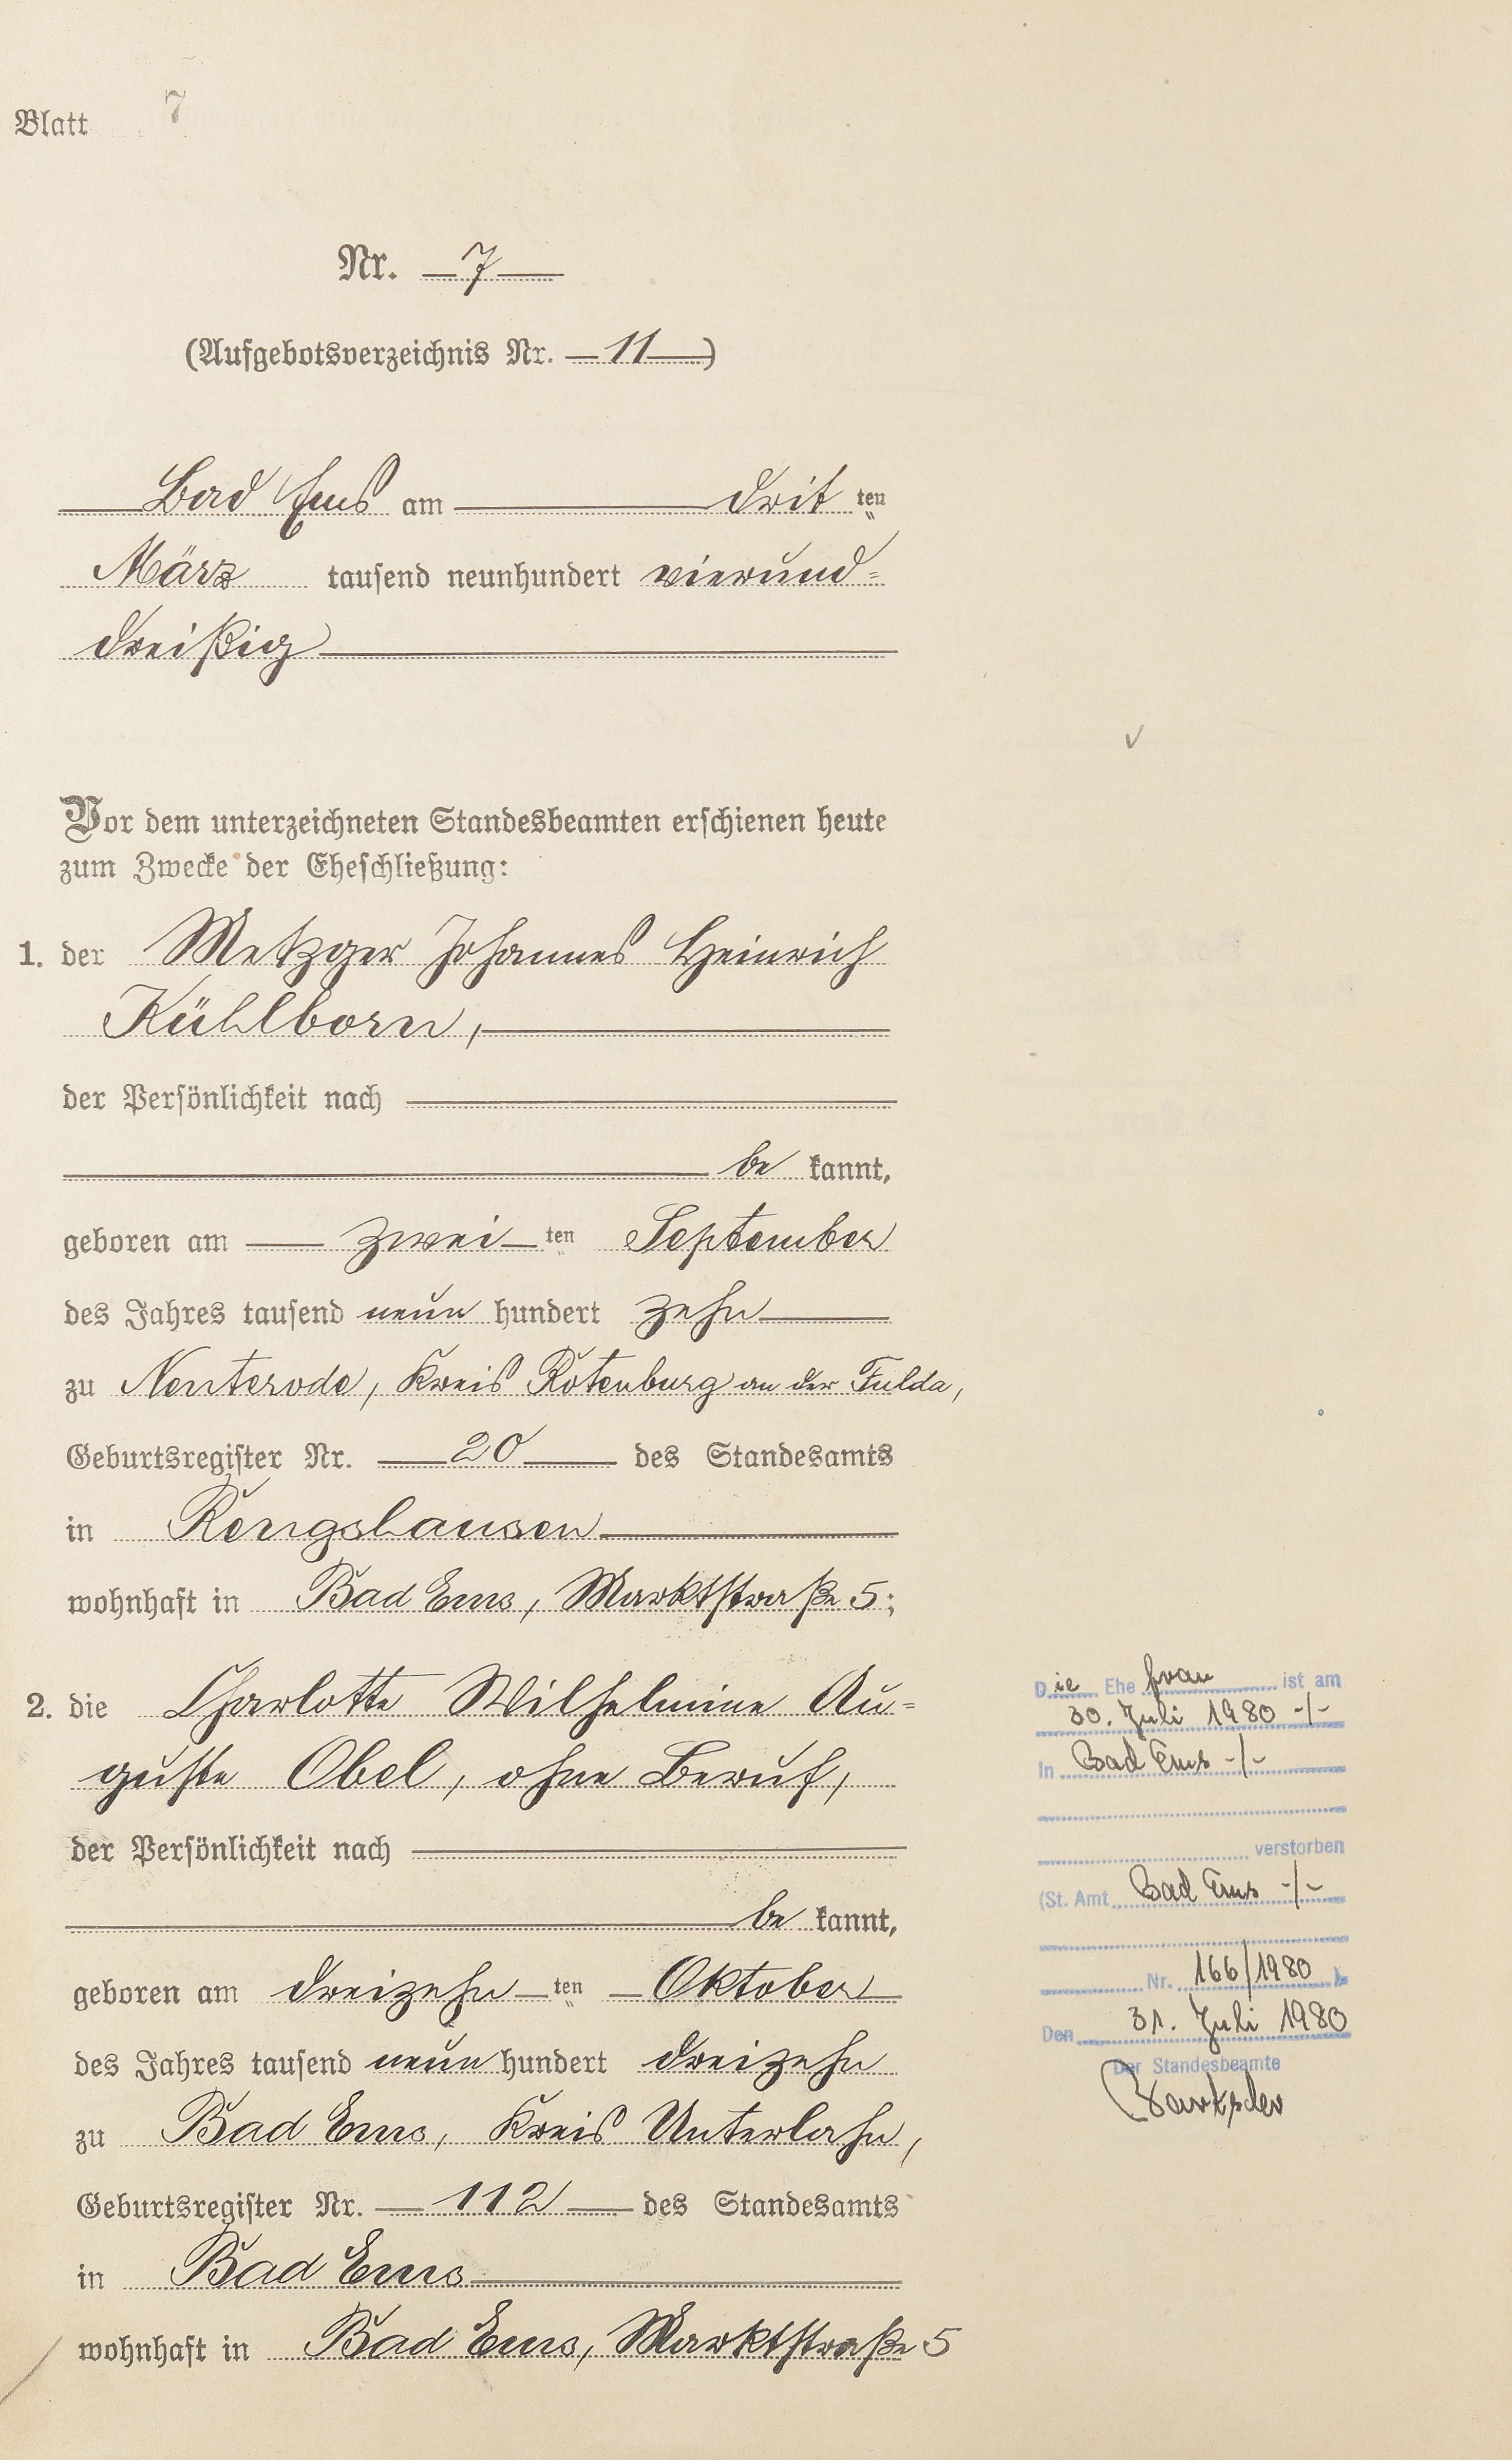 Blatt 7
Nr. 7
(Aufgebotsverzeichnis Nr. 11)
Bad Ems am drit ten
März tausend neunhundert vierund=
dreißig
Vor dem unterzeichneten Standesbeamten erschienen heute
zum Zwecke der Eheschließung:
1. der Metzger Johannes Heinrich
Kühlborn,
der Persönlichkeit nach
be kannt,
geboren am zwei ten September
des Jahres tausend neun hundert zehn
zu Nenterode, Kreis Rotenburg an der Fulda,
Geburtsregister Nr. 20 des Standesamts
in Rengshausen
wohnhaft in Bad Ems, Marktstraße 5;
2. die Charlotte Wilhelmine Au=
guste Obel, ohne Beruf,
der Persönlichkeit nach
be kannt,
geboren am dreizehn ten Oktober
des Jahres tausend neun hundert dreizehn
zu Bad Ems, Kreis Unterlahn,
Geburtsregister Nr. 112 des Standesamts
in Bad Ems
wohnhaft in Bad Ems, Marktstraße 5
Die Ehefrau ist am
30. Juli 1980 -/-
in Bad Ems -/-
verstorben
(St. Amt Bad Ems -/-
Nr. 166/1980 )
Den 31. Juli 1980
Der Standesbeamte